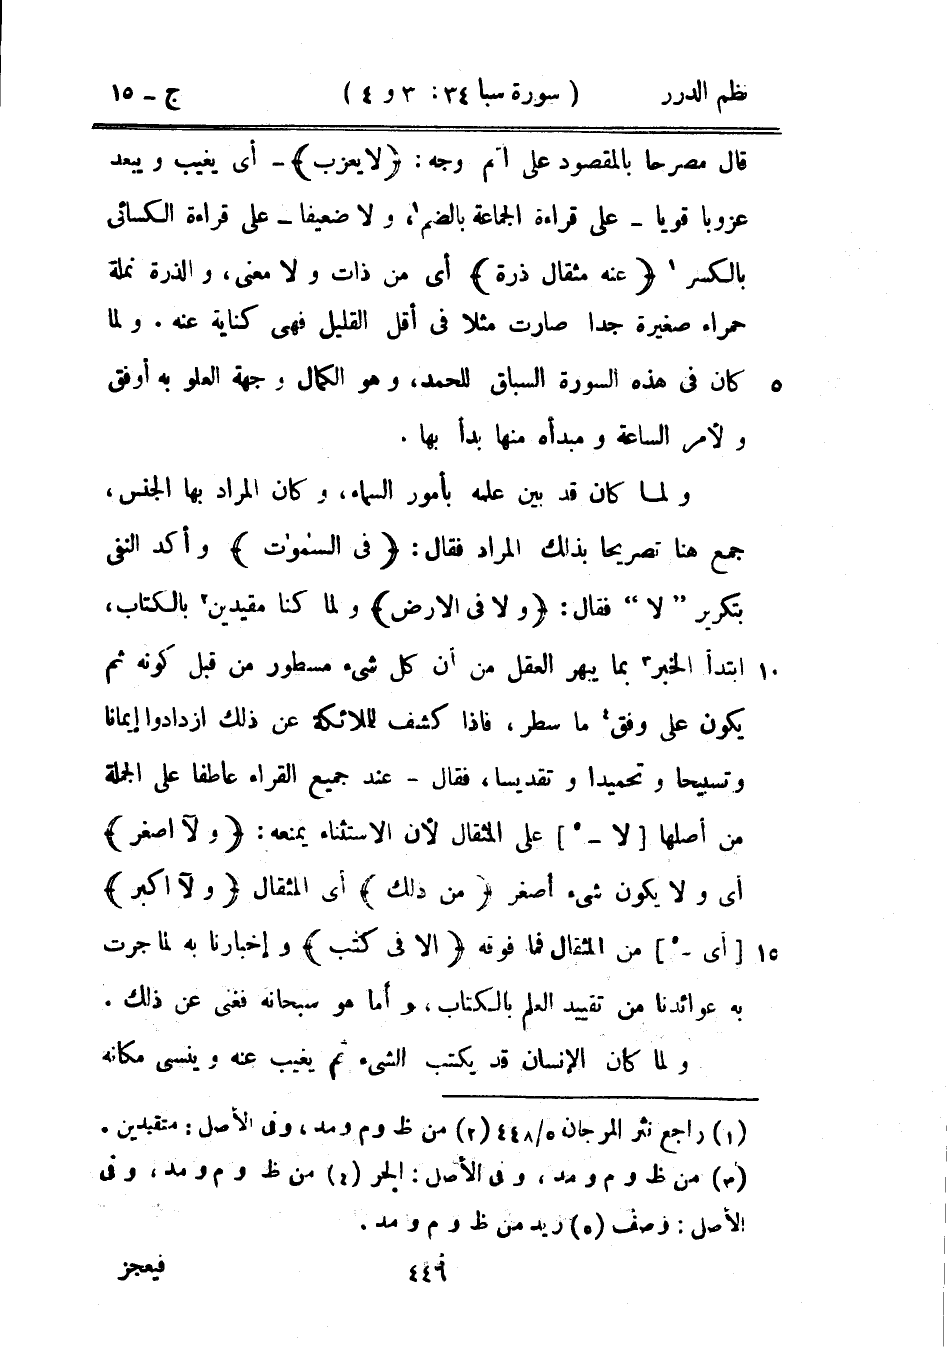 نظم الدرر ( سورة سبا ٣٤: ٣ و ٤ ) ج ـ ١٥
قال مصرحا بالمقصود على أتم وجه : ﴿لا يعزب﴾ ـ أى يغيب و يبعد
عزوبا قويا ـ على قراءة الجماعة بالضم١، و لا ضعيفا ـ على قراءة الكسائى
بالكسر١ ﴿ عنه مثقال ذرة ﴾ أى من ذات و لا معنى، و الذرة نملة
حمراء صغيرة جدا صارت مثلا فى أقل القليل فهى كناية عنه . و لما
٥ كان فى هذه السورة السباق للحمد، و هو الكمال و جهة العلو به أوفق
و لأمر الساعة و مبدأه منها بدأ بها .
و لما كان قد بين علمه بأمور السماء، و كان المراد بها الجنس،
جمع هنا تصريحا بذلك المراد فقال : ﴿ فى السمٰوٰت ﴾ و أكد النفى
بتكرير ”لا“ فقال : ﴿و لا فى الارض﴾ و لما كنا مقيدين٢ بالكتاب،
١٠ ابتدأ الخبر٣ بما يبهر العقل من أن كل شىء مسطور من قبل كونه ثم
يكون على وفق٤ ما سطر، فاذا كشف للملائكة عن ذلك ازدادوا إيمانا
وتسبيحا و تحميدا و تقديسا، فقال - عند جميع القراء عاطفا على الجملة
من أصلها [ لا ـ٥ ] على المثقال لأن الاستثناء يمنعه : ﴿ و لآ اصغر ﴾
أى و لا يكون شىء أصغر ﴿ من ذلك ﴾ أى المثقال ﴿ و لآ اكبر ﴾
١٥ [ أى ـ٥ ] من المثقال فما فوقه ﴿ الا فى كتٰب ﴾ و إخبارنا به لما جرت
به عوائدنا من تقييد العلم بالكتاب، و أما هو سبحانه فغنى عن ذلك .
و لما كان الإنسان قد يكتب الشىء ثم يغيب عنه و ينسى مكانه
(١) راجع نثر المرجان ٥/٤٤٨ (٢) من ظ و م و مد ، و فى الأصل : متقيدين .
(٣) من ظ و م و مد ، و فى الأصل : الجر (٤) من ظ و م و مد ، و فى
الأصل : وصف (٥) زيد من ظ و م و مد .
٤٤٦ فيعجز